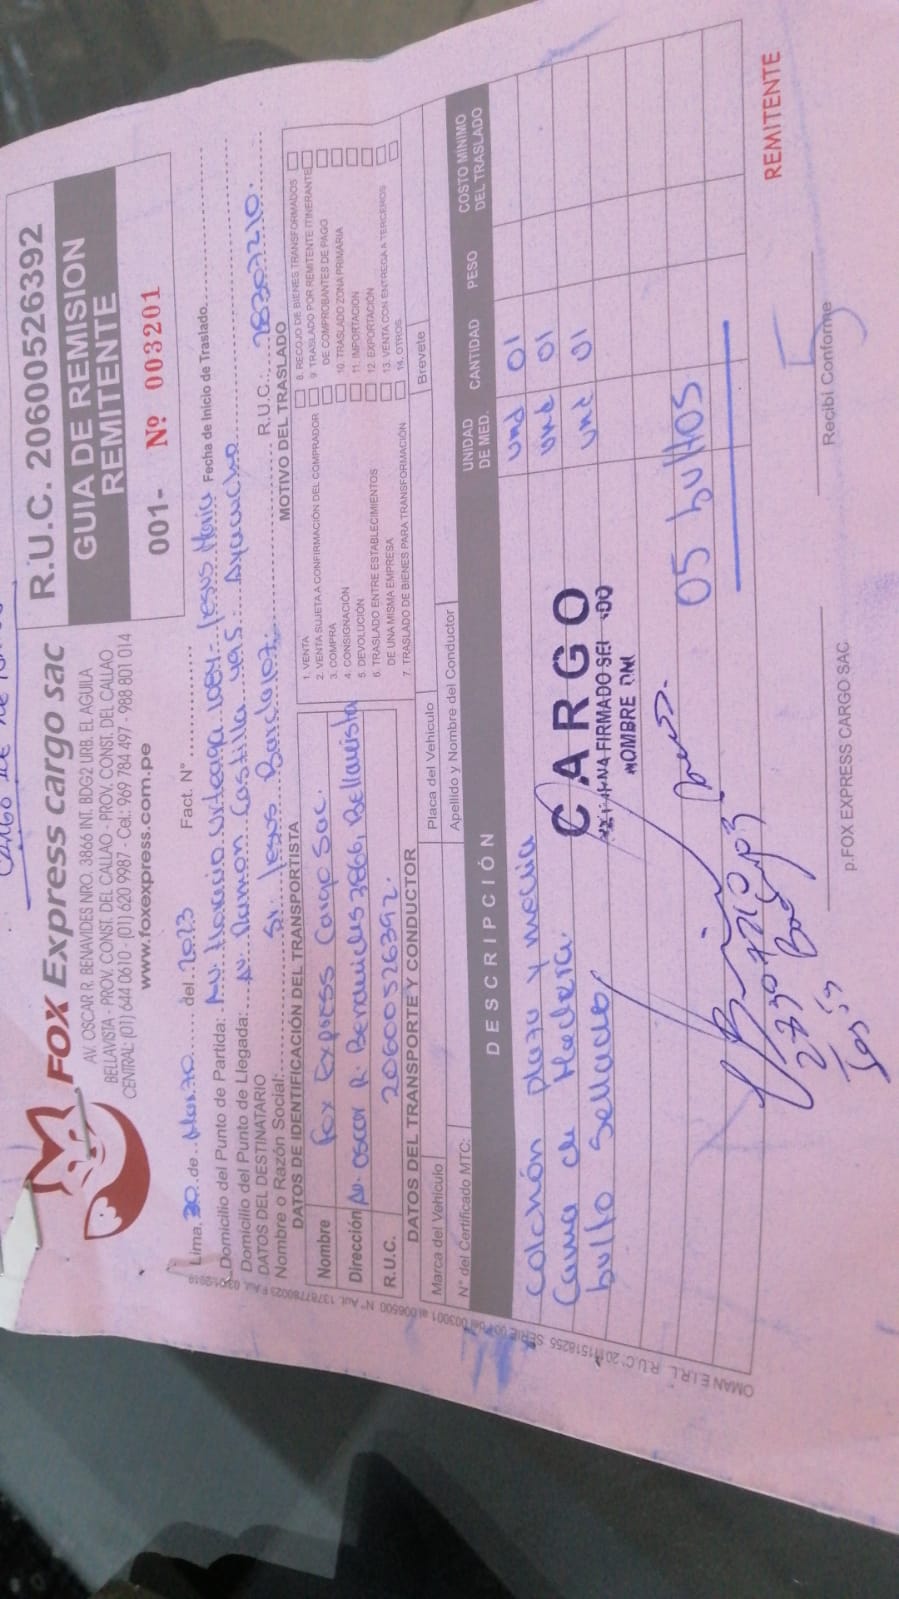 FOX Express cargo sac
AV. OSCAR R. BENAVIDES NRO. 3866 INT. BDG2 URB. EL AGUILA
BELLAVISTA - PROV. CONST. DEL CALLAO - PROV. CONST. DEL CALLAO
CENTRAL: (01) 644 0610 - (01) 620 9987 - Cel.: 969 784 497 - 988 801 014
www.foxexpress.com.pe
R.U.C. 20600526392
GUIA DE REMISION
REMITENTE
001- Nº 003201
Lima, 30 de Marzo del 2023 Fact. N°
Domicilio del Punto de Partida: Av. Horacio Urteaga 1084 - Jesus Maria Fecha de Inicio de Traslado
Domicilio del Punto de Llegada: Av. Ramon Castilla 495 Ayacucho
DATOS DEL DESTINATARIO
Nombre o Razón Social: Sr. Jesus R.U.C.: 28307210.
DATOS DE IDENTIFICACIÓN DEL TRANSPORTISTA
Nombre Fox Express Cargo Sac.
Dirección Av. Oscar R. Benavides 3866, Bellavista
R.U.C. 20600526392.
MOTIVO DEL TRASLADO
1. VENTA
2. VENTA SUJETA A CONFIRMACIÓN DEL COMPRADOR
3. COMPRA
4. CONSIGNACIÓN
5. DEVOLUCIÓN
6. TRASLADO ENTRE ESTABLECIMIENTOS
DE UNA MISMA EMPRESA
7. TRASLADO DE BIENES PARA TRANSFORMACIÓN
8. RECOJO DE BIENES TRANSFORMADOS
9. TRASLADO POR REMITENTE ITINERANTE
DE COMPROBANTES DE PAGO
10. TRASLADO ZONA PRIMARIA
11. IMPORTACIÓN
12. EXPORTACIÓN
13. VENTA CON ENTREGA A TERCEROS
14. OTROS
DATOS DEL TRANSPORTE Y CONDUCTOR
Marca del Vehículo Placa del Vehículo Brevete
N° del Certificado MTC: Apellido y Nombre del Conductor
DESCRIPCIÓN UNIDAD DE MED. CANTIDAD PESO COSTO MÍNIMO DEL TRASLADO
Colchón plaza y media und 01
Cama de Madera. und 01
bulto Sellado und 01
CARGO
FIRMADO
NOMBRE DNI
05 bultos
Jesús
p.FOX EXPRESS CARGO SAC
Recibí Conforme
REMITENTE